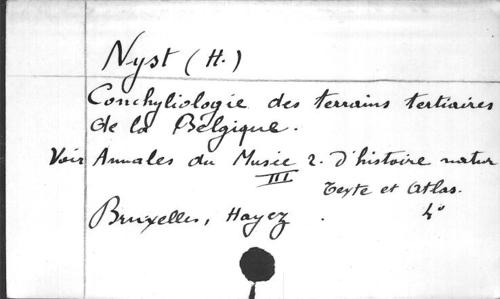 Nyst (H.)
Conchyliologie des terrains tertiaires
de la Belgique.
Voir Annales du Musée r. d'histoire natur
III
Texte et Atlas.
Bruxelles, Hayez . 4°